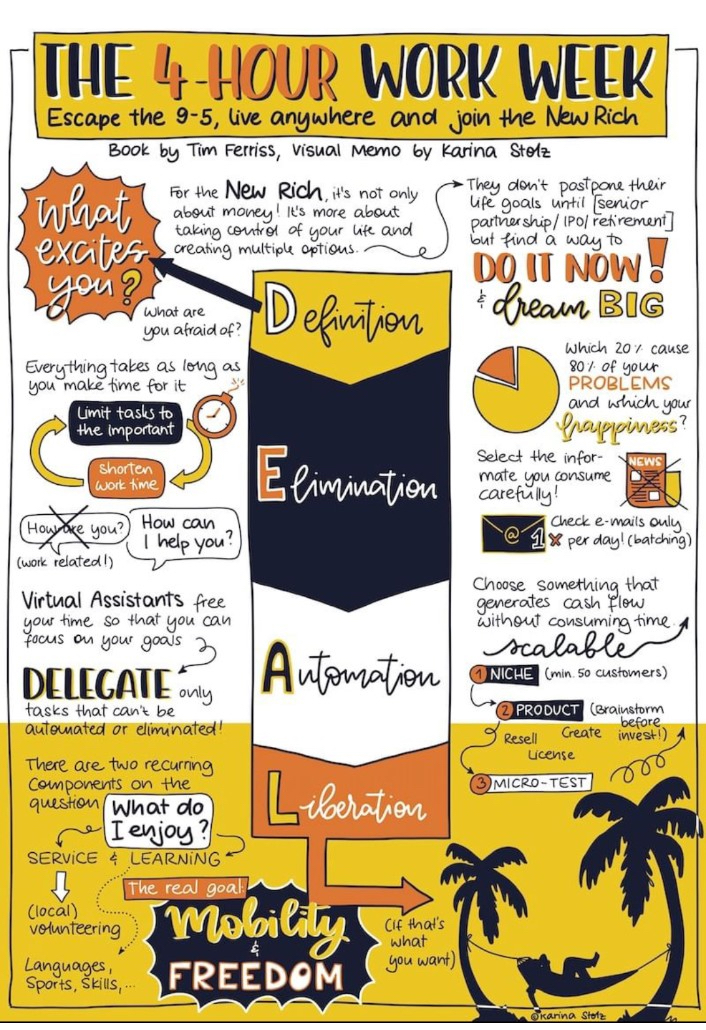 THE 4-HOUR WORK WEEK
Escape the 9-5, live anywhere and join the New Rich
Book by Tim Ferriss, Visual Memo by Karina Stolz
What
excites
you?
For the New Rich, it's not only
about money! It's more about
taking control of your life and
creating multiple options.
They don't postpone their
life goals until [senior
partnership/IPO/retirement]
but find a way to
DO IT NOW!
& dream BIG
What are
you afraid of?
Definition
Everything takes as long as
you make time for it
Limit tasks to
the important
Shorten
work time
Which 20% cause
80% of your
PROBLEMS
and which your
happiness?
Elimination
Select the infor-
mate you consume
carefully!
NEWS
How are you?
(work related!)
How can
I help you?
@
1x
Check e-mails only
per day! (batching)
Virtual Assistants free
your time so that you can
focus on your goals
DELEGATE only
tasks that can't be
automated or eliminated!
Automation
Choose something that
generates cash flow
without consuming time.
scalable
1 NICHE (min. 50 customers)
2 PRODUCT (Brainstorm
before
invest!)
Resell
Create
License
3 MICRO-TEST
There are two recurring
Components on the
question
What do
I enjoy?
SERVICE & LEARNING
(local)
volunteering
Languages,
Sports, Skills,...
Liberation
The real goal:
Mobility
&
FREEDOM
(If that's
what
you want)
©Karina Stolz